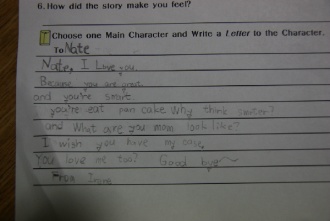 6. How did the story make you feel?
7 Choose one Main Character and Write a Letter to the Character.
To Nate
Nate, I Love you.
Because you are great
and you're smart.
you're eat pan cake why think smater?
and What are you mom look like?
I wish you have my case.
You love me too? Good bye~
From